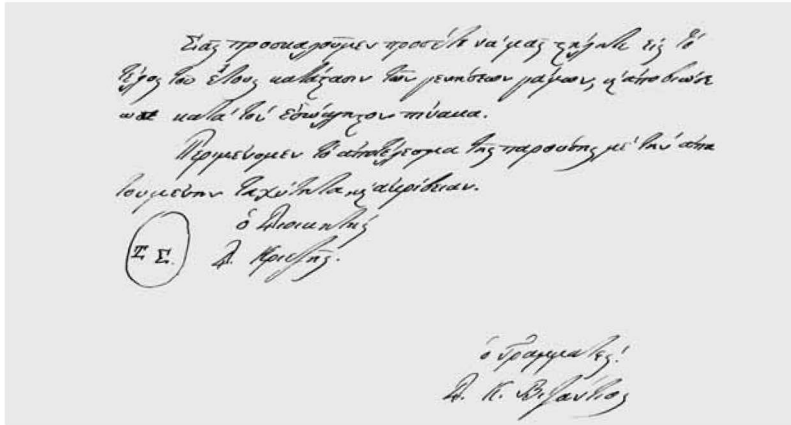 Σᾶς προσκαλοῦμεν προσέτι νὰ μᾶς στήλητε εἰς τὸ
τέλος τοῦ ἔτους κατάστασιν τῶν γεννήσεων γάμων, κ' ἀποβιώσε
ων κατὰ τὸν ἐσώκλειστον πίνακα.
Περιμένομεν τὸ ἀποτέλεσμα τῆς παρούσης μὲ τὴν ἀπαι
τουμένην ταχύτητα κ' ἀκρίβειαν.
ὁ Διοικητής
Τ. Σ. Δ. Κριεζῆς.
ὁ Γραμματεύς
Δ. Κ. Βιζάντιος